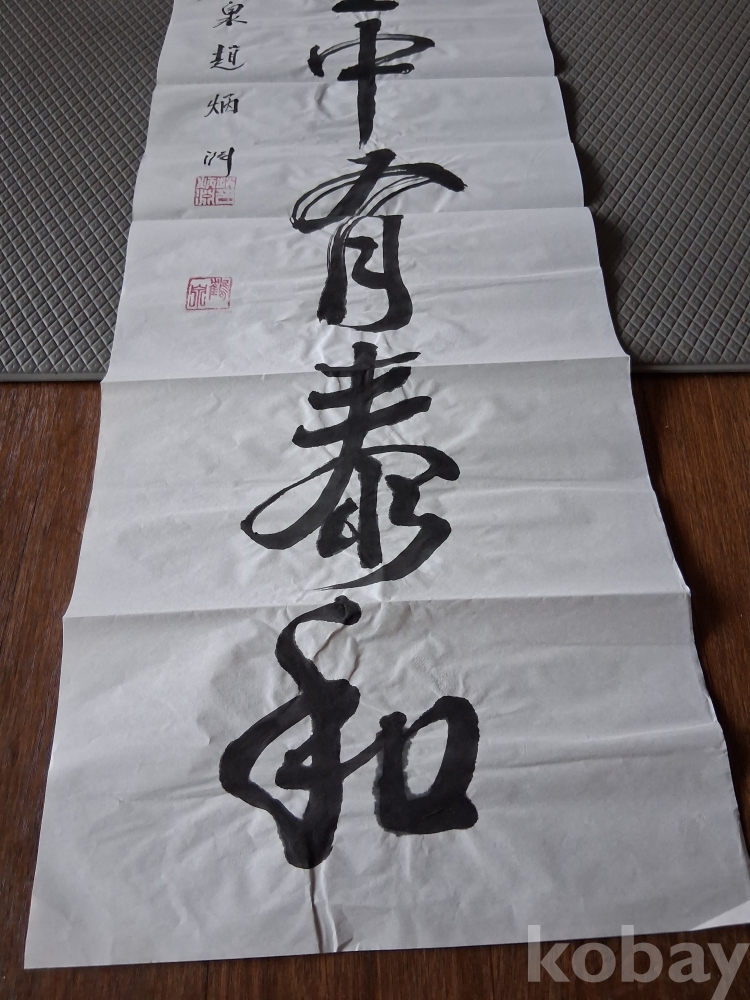 中有泰和
泉趙炳
鶴泉
kobay